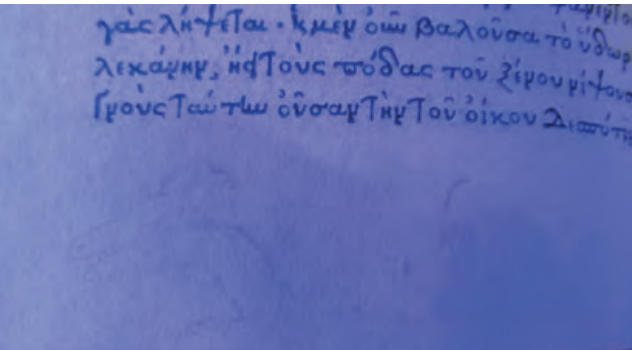 γὰς λήψεται · μὲν οὖν βαλοῦσα τὸ ὕδωρ
λεκάνην, τοὺς πόδας τοῦ ξένου
Γνοὺς ταύτην οὖσαν τὴν τοῦ οἴκου